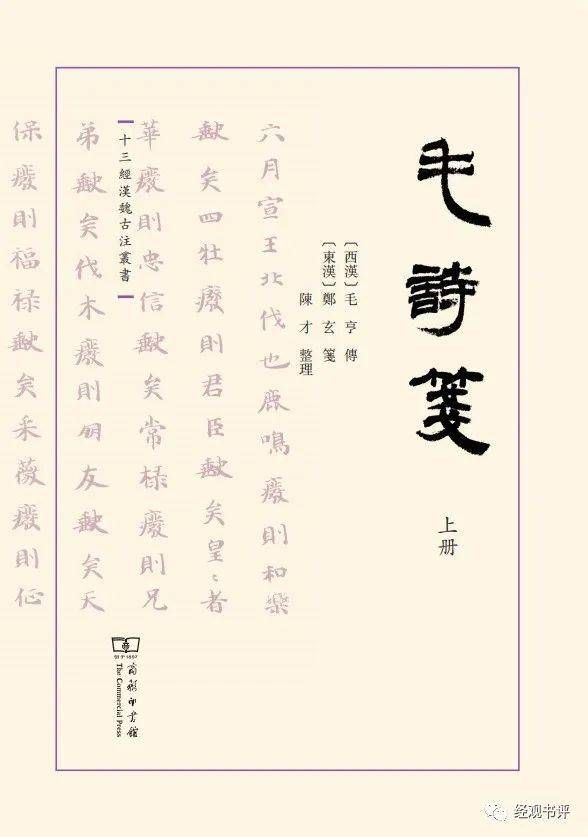 毛詩箋
上册
〔西漢〕毛亨 傳
〔東漢〕鄭玄 箋
陳才 整理
六月宣王北伐也鹿鳴癈則和樂
缺矣四牡癈則君臣缺矣皇〻者
華癈則忠信缺矣常棣癈則兄
十三經漢魏古注叢書
弟缺矣伐木癈則朋友缺矣天
保癈則福祿缺矣采薇癈則征
创于1897
商務印書館
The Commercial Press
经观书评